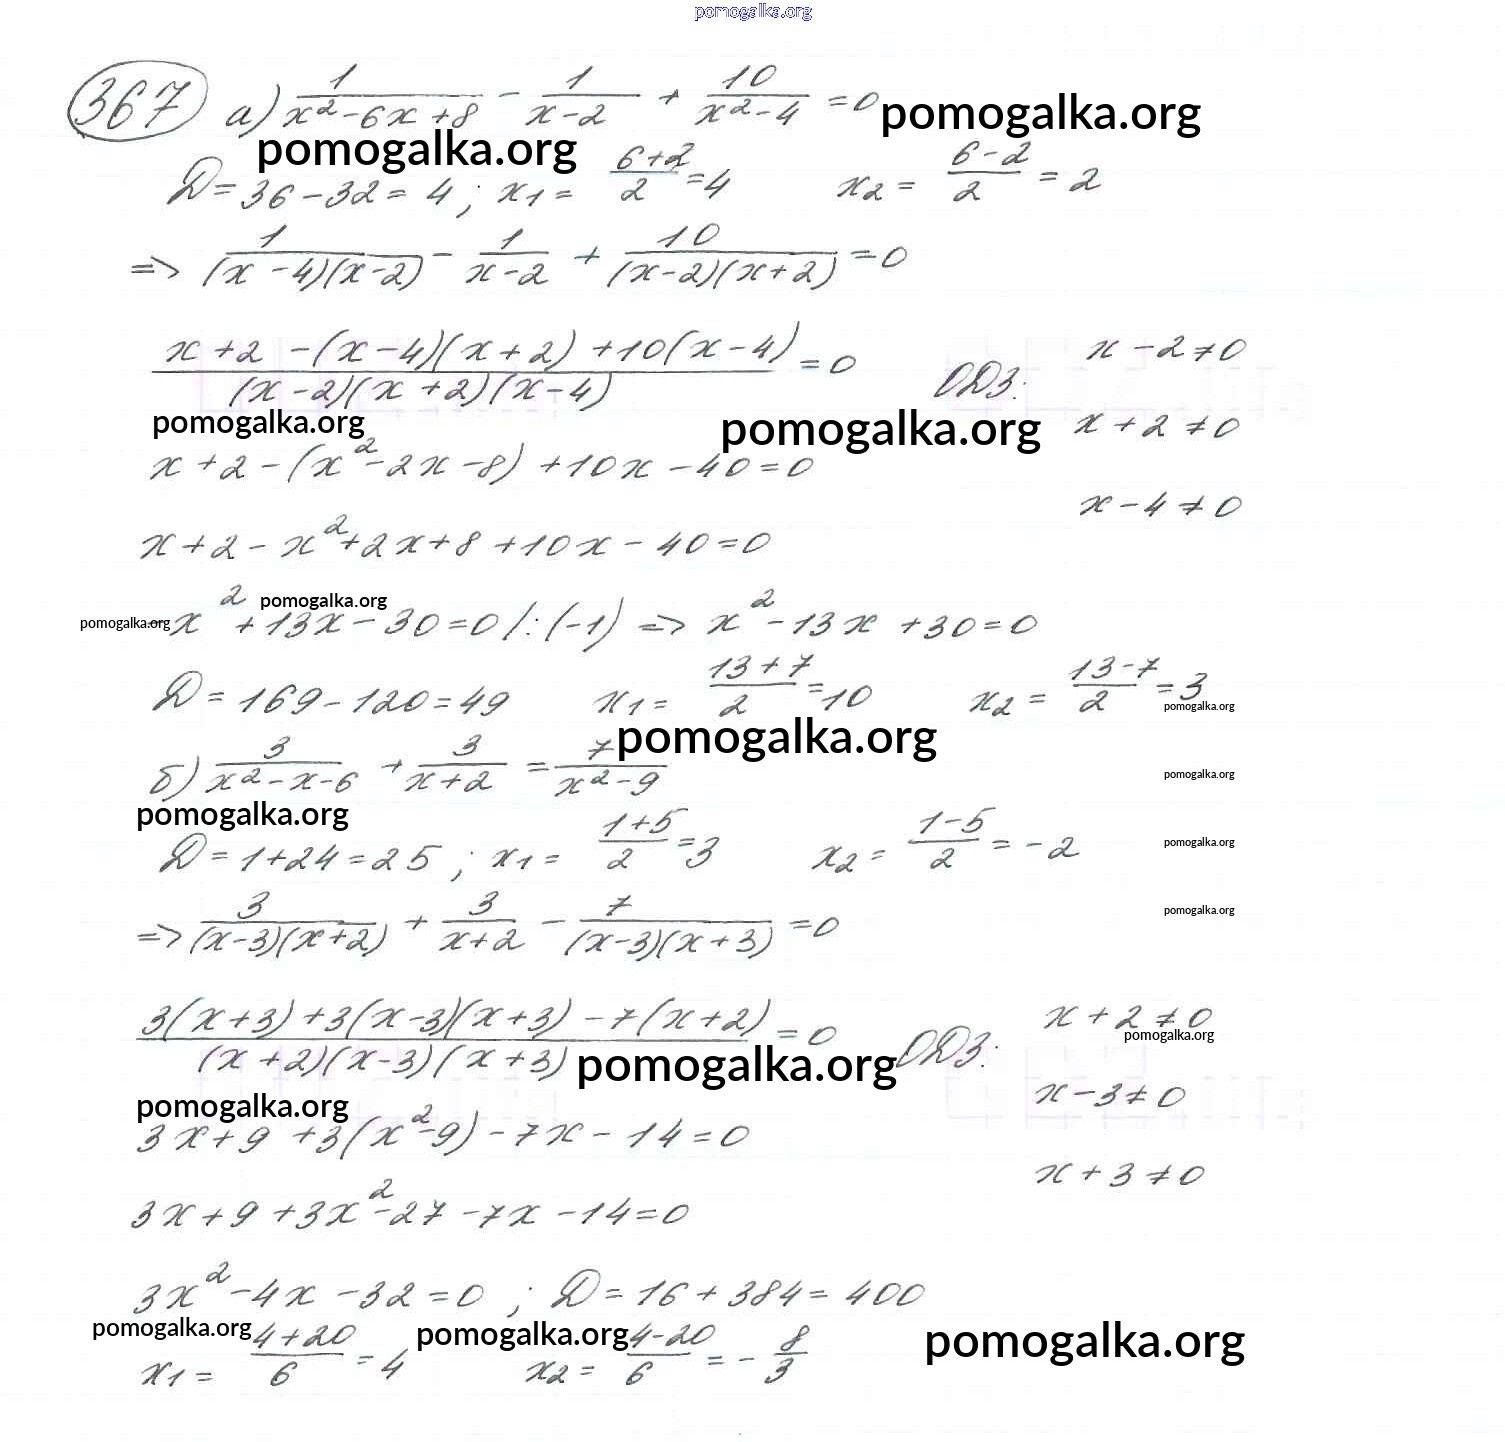 pomogalka.org
367 а) 1/(x²-6x+8) - 1/(x-2) + 10/(x²-4) =0 pomogalka.org
pomogalka.org
D=36-32=4; x1= (6+2)/2 =4 x2= (6-2)/2 =2
=> 1/((x-4)(x-2)) - 1/(x-2) + 10/((x-2)(x+2)) =0
(x+2-(x-4)(x+2)+10(x-4))/((x-2)(x+2)(x-4)) =0 ОДЗ: x-2≠0
pomogalka.org pomogalka.org x+2≠0
x+2-(x²-2x-8)+10x-40=0
x-4≠0
x+2-x²+2x+8+10x-40=0
pomogalka.org
pomogalka.org
-x²+13x-30=0 /:(-1) => x²-13x+30=0
D=169-120=49 x1= (13+7)/2 =10 x2= (13-7)/2 =3
pomogalka.org
pomogalka.org
б) 3/(x²-x-6) + 3/(x+2) = 7/(x²-9)
pomogalka.org
pomogalka.org
D=1+24=25; x1= (1+5)/2 =3 x2= (1-5)/2 =-2
pomogalka.org
pomogalka.org
=> 3/((x-3)(x+2)) + 3/(x+2) - 7/((x-3)(x+3)) =0
(3(x+3)+3(x-3)(x+3)-7(x+2))/((x+2)(x-3)(x+3)) =0 ОДЗ: x+2≠0
pomogalka.org
pomogalka.org
x-3≠0
pomogalka.org
3x+9+3(x²-9)-7x-14=0
x+3≠0
3x+9+3x²-27-7x-14=0
3x²-4x-32=0; D=16+384=400
pomogalka.org pomogalka.org pomogalka.org
x1= (4+20)/6 =4 x2= (4-20)/6 =- 8/3